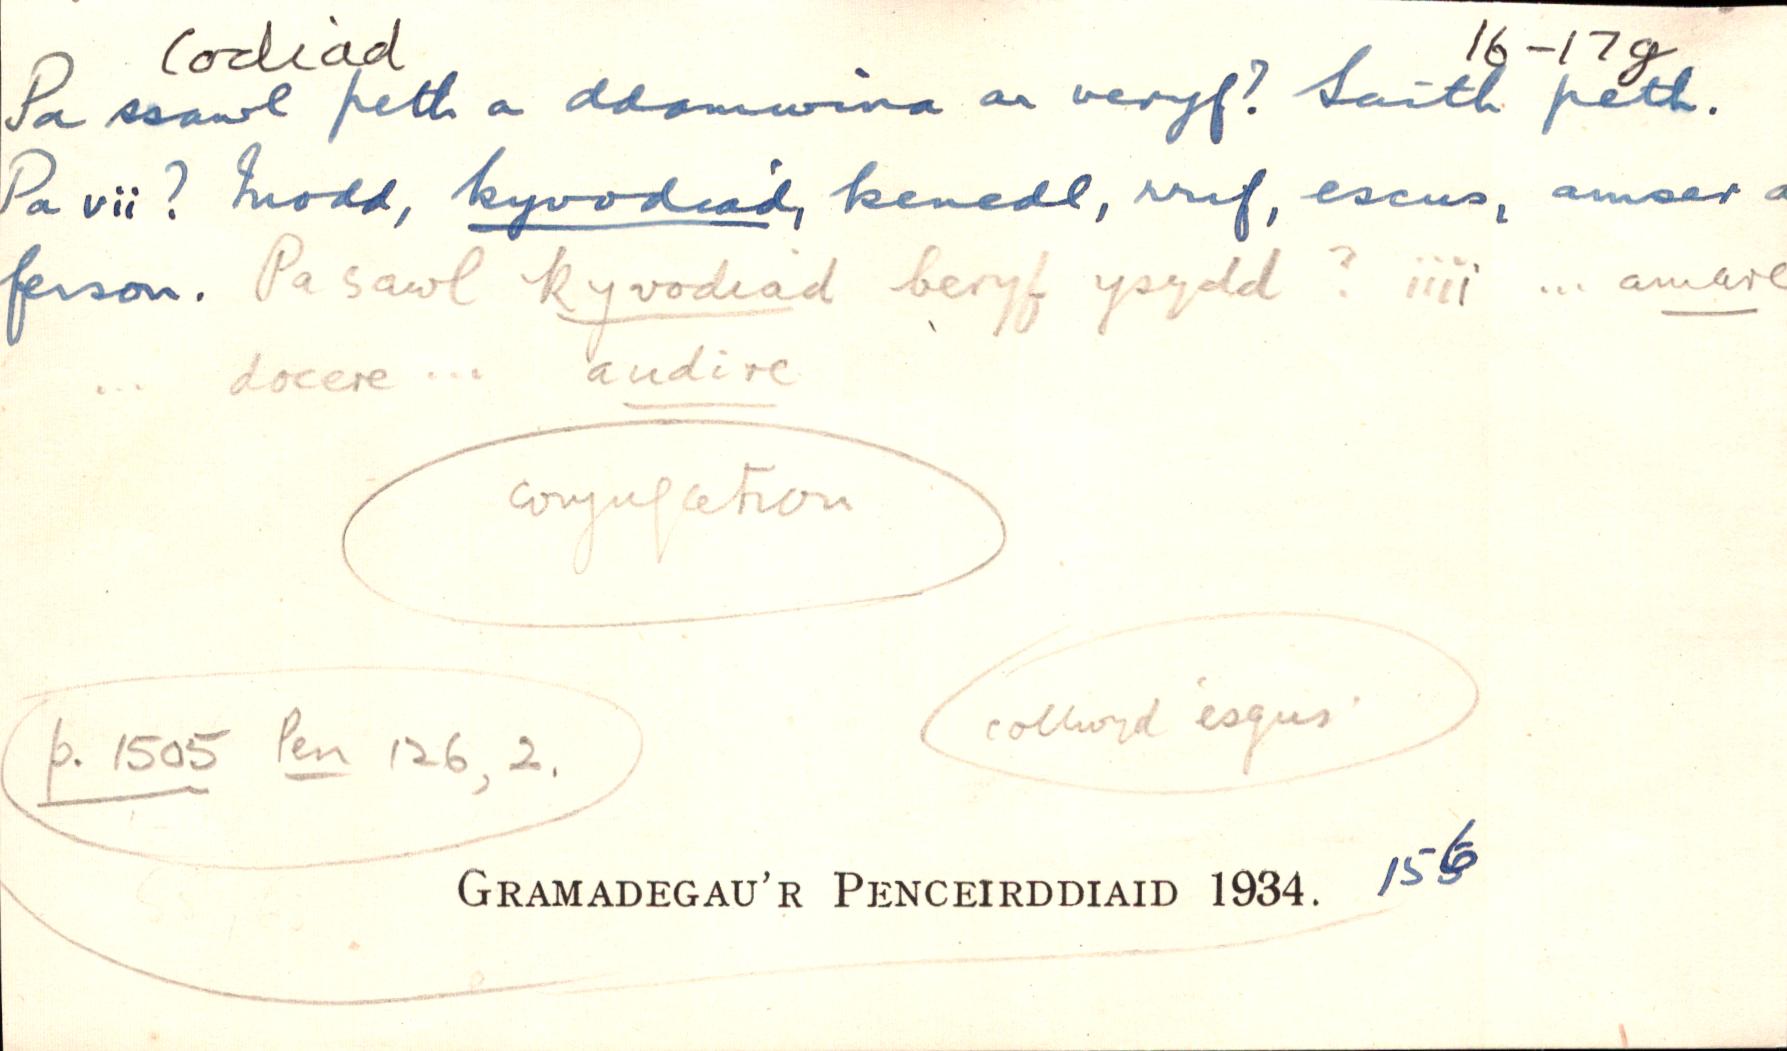 codiad 16-17g
Pa ssawl peth a ddamwina ar veryf? Saith peth.
Pa vii? Modd, kyvodiad, kenedl, rrif, escus, amser a
ferson. Pa sawl kyvodiad beryf ysydd? iiii ... amare
... docere ... audire
conjugation
collwyd 'esgus'
p. 1505 Pen 126, 2.
GRAMADEGAU'R PENCEIRDDIAID 1934. 156